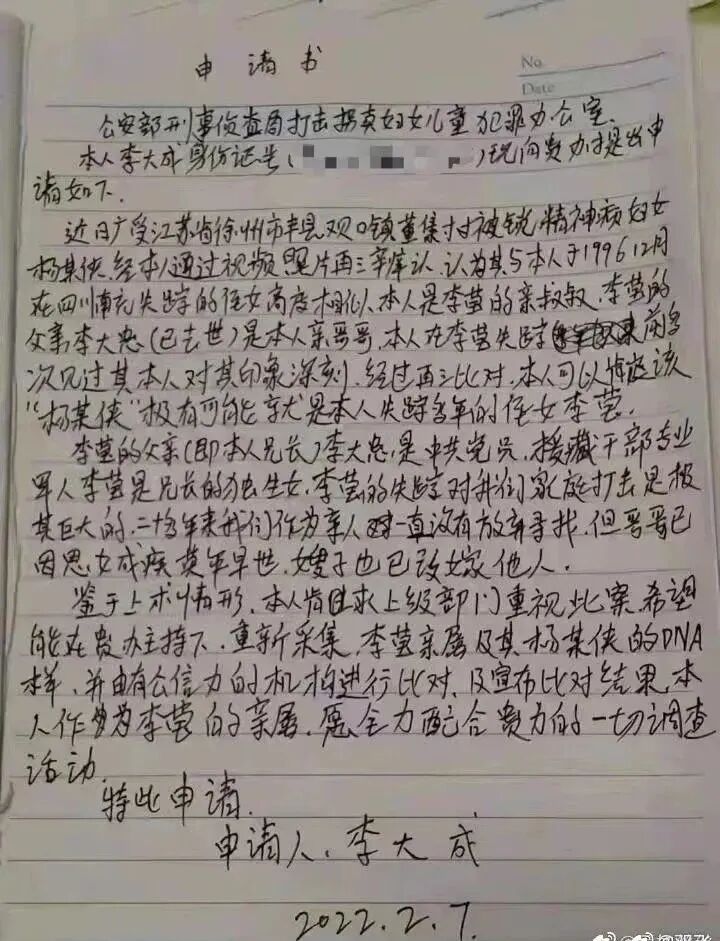 申请书
No.
Date
公安部刑事侦查局打击拐卖妇女儿童犯罪办公室.
本人李大成身份证号()现向贵办提出申
请如下.
近日广受江苏省徐州市丰县观口镇董集村被锁精神病妇女
杨某侠.经本人通过视频照片再三辨认.认为其与本人于1996 12月
在四川南充失踪的侄女高度相似.本人是李莹的亲叔叔.李莹的
父亲李大忠(已去世)是本人亲哥哥.本人在李莹失踪前多
次见过其本人对其印象深刻.经过再三比对.本人可以情
该
“杨某侠”极有可能就是本人失踪多年的侄女李莹.
李莹的父亲(即本人兄长)李大忠.是中共党员.援藏干部专业
军人李莹是兄长的独生女.李莹的失踪对我们家庭打击是极
其巨大的.二十多年来我们作为亲人一直没有放弃寻找.但哥哥已
因思女成疾英年早世.嫂子也已改嫁他人.
鉴于上术情形.本人肯且求上级部门重视此案.希望
能在贵办主持下.重新采集.李莹亲属及其杨某侠的DNA
样.并由有公信力的机构进行比对.及宣布比对结果.本
人作为李莹的亲属.愿全力配合贵方的一切调查
活动.
特此申请.
申请人.李大成
2022.2.7.